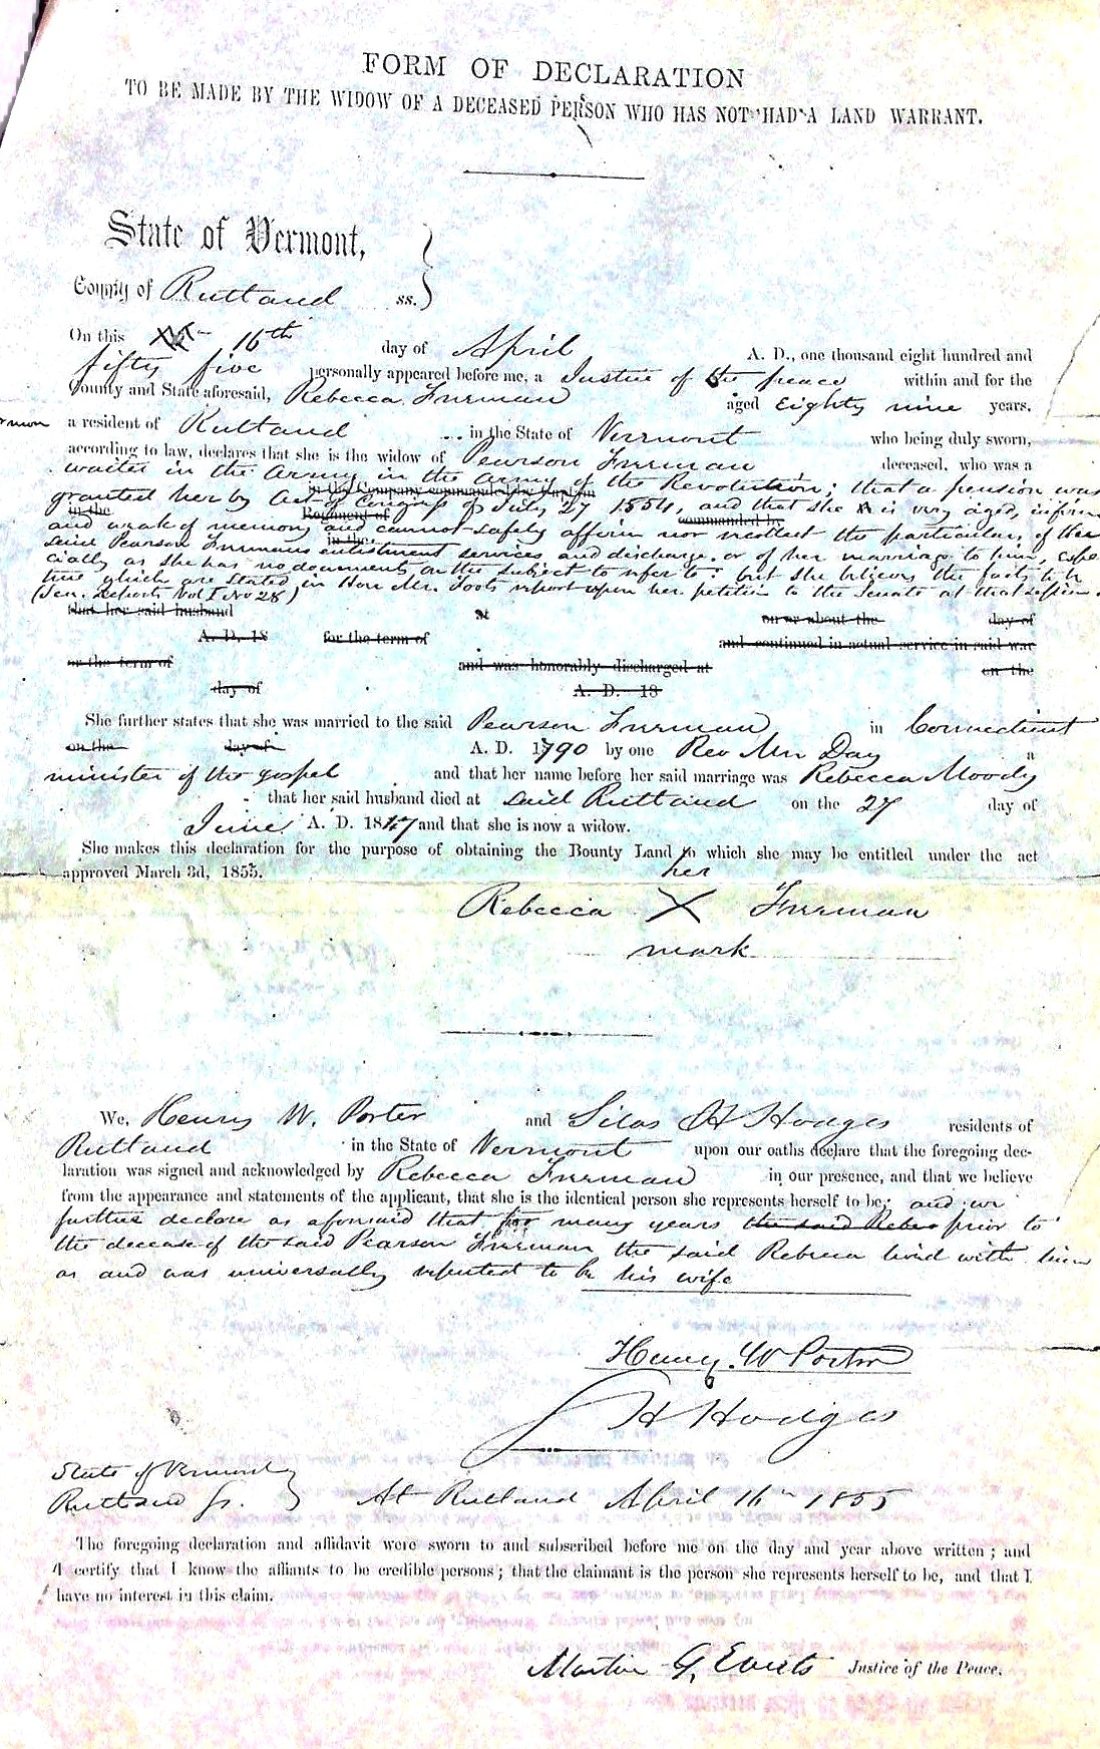 FORM OF DECLARATION
TO BE MADE BY THE WIDOW OF A DECEASED PERSON WHO HAS NOT HAD A LAND WARRANT.
State of Vermont,
County of Rutland ss.
On this 16th day of April A. D., one thousand eight hundred and
fifty five personally appeared before me, a Justice of the peace within and for the
County and State aforesaid, Rebecca Furman aged eighty nine years,
a resident of Rutland in the State of Vermont who being duly sworn,
according to law, declares that she is the widow of Pearson Furman deceased, who was a
waiter in the Army in the Army of the Revolution; that a pension was
in the Company commanded by Captain
granted her by Act of Congress of July 27 1854, and that she is very aged, infirm
in the Regiment of commanded by
and weak of memory and cannot safely affirm nor recollect the particulars of her
in the
said Pearson Furmans enlistment services and discharge, or of her marriage to him, espe
cially as she has no documents on the subject to refer to: but she believes the facts to be
true which are stated in Hon Mr. Foots report upon her petition to the Senate at that session.
(Sen. Reports Vol I No 28)
that her said husband at on or about the day of
A. D. 18 for the term of and continued in actual service in said war
or the term of and was honorably discharged at on the
day of A. D. 18
She further states that she was married to the said Pearson Furman in Connecticut
on the day of A. D. 1790 by one Rev Mr Day a
minister of the gospel and that her name before her said marriage was Rebecca Moody
that her said husband died at said Rutland on the 27 day of
June A. D. 1847 and that she is now a widow.
She makes this declaration for the purpose of obtaining the Bounty Land to which she may be entitled under the act
approved March 3d, 1855.
her
Rebecca X Furman
mark
We, Henry W. Porter and Silas H Hodges residents of
Rutland in the State of Vermont upon our oaths declare that the foregoing dec-
laration was signed and acknowledged by Rebecca Furman in our presence, and that we believe
from the appearance and statements of the applicant, that she is the identical person she represents herself to be; and we
further declare as aforesaid that for many years the said Rebec prior to
the decease of the said Pearson Furman the said Rebecca lived with him
as and was universally reputed to be his wife
Henry W Porter
S H Hodges
State of Vermont
Rutland Ss. At Rutland April 16th 1855
The foregoing declaration and affidavit were sworn to and subscribed before me on the day and year above written; and
I certify that I know the affiants to be credible persons; that the claimant is the person she represents herself to be, and that I
have no interest in this claim.
Martin G. Everts Justice of the Peace.